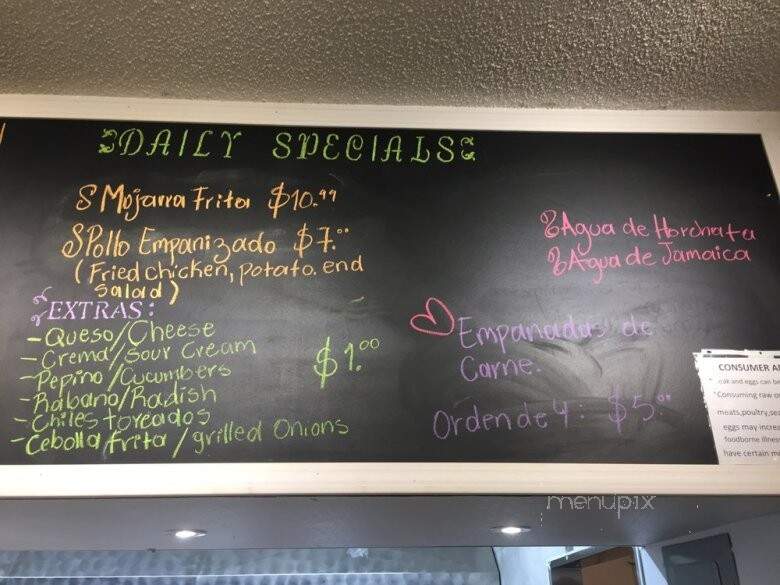 DAILY SPECIALS
Mojarra Frita $10.99
Pollo Empanizado $7.00
(Fried chicken, potato. end
salad)
EXTRAS:
-Queso/Cheese
-Crema/Sour Cream
-Pepino/Cucumbers
-Rabano/Radish
-Chiles toreados
-Cebolla frita/grilled Onions
$1.00
Agua de Horchata
Agua de Jamaica
Empanadas de
Carne.
Orden de 4: $5.00
CONSUMER
eggs can be
*Consuming raw
meats, poultry,
eggs may
foodborne
have certain
menupix